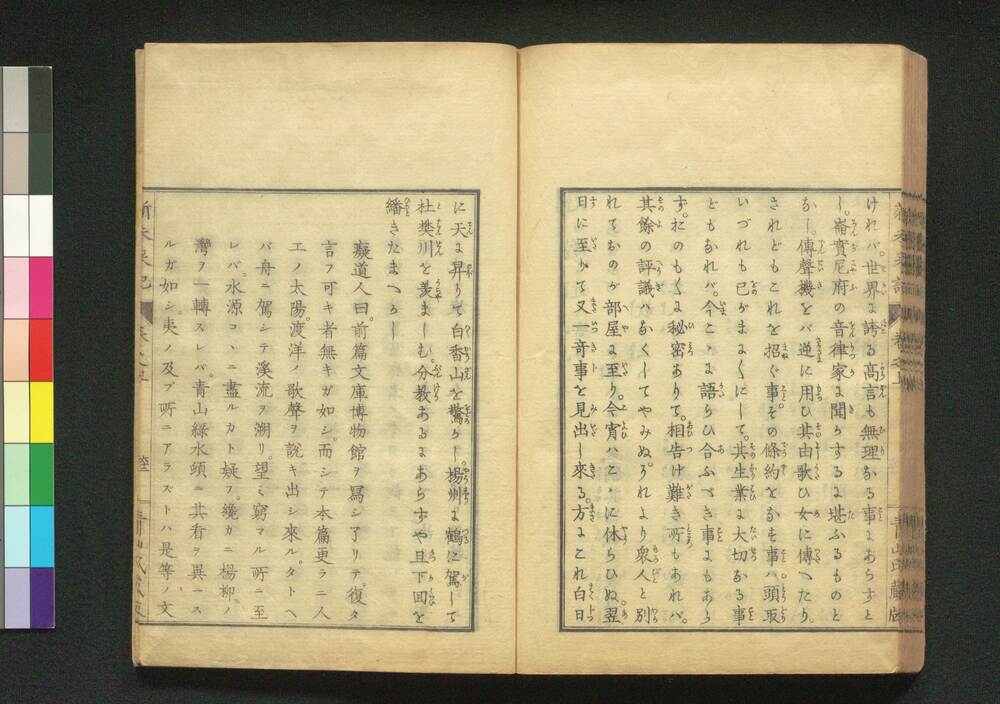 けれバ。世界に誇る高言も無理なる事にあらずと
し。崙實尼府の音律家に聞かするに堪ふるものと
なし。傳聲機をバ逆に用ひ其由歌ひ女に傳へたり。
されどもこれを招ぐ事その條約をなも事ハ頭取
いづれも已がまゝにして。其生業に大切なる事
ともなれバ。今こゝに語らひ合ふべき事にもあら
ず。扨のもくに秘密ありて。相告け難き所もあれバ。
其餘の評議ハなくてやみぬ。かれより衆人と別
れておのが部屋に至り。今宵ハこゝに休らひぬ。翌
日に至りて又一奇事を見出し來る。方にこれ白日
に天に昇りて白香山を驚かし。楊州に鶴に駕して
杜樊川を羨ましも。分教あるにあらずや且下回を
繙きたまへかし
癡道人曰。前篇文庫博物館ヲ寫シ了リテ。復タ
言フ可キ者無キガ如シ。而シテ本篇更ラニ人
エノ太陽。渡洋ノ歌聲ヲ說キ出シ來ル。タトヘ
バ舟ニ駕シテ溪流ヲ溯リ。望ミ窮マル所ニ至
レバ。水源コヽニ盡ルカト疑フ。纔カニ楊柳ノ
灣ヲ一轉スレバ。青山綠水頭ニ其看ヲ異ニス
ルガ如シ。夫ノ及ブ所ニアラズトハ是等ノ文
新未來記
青山氏藏版